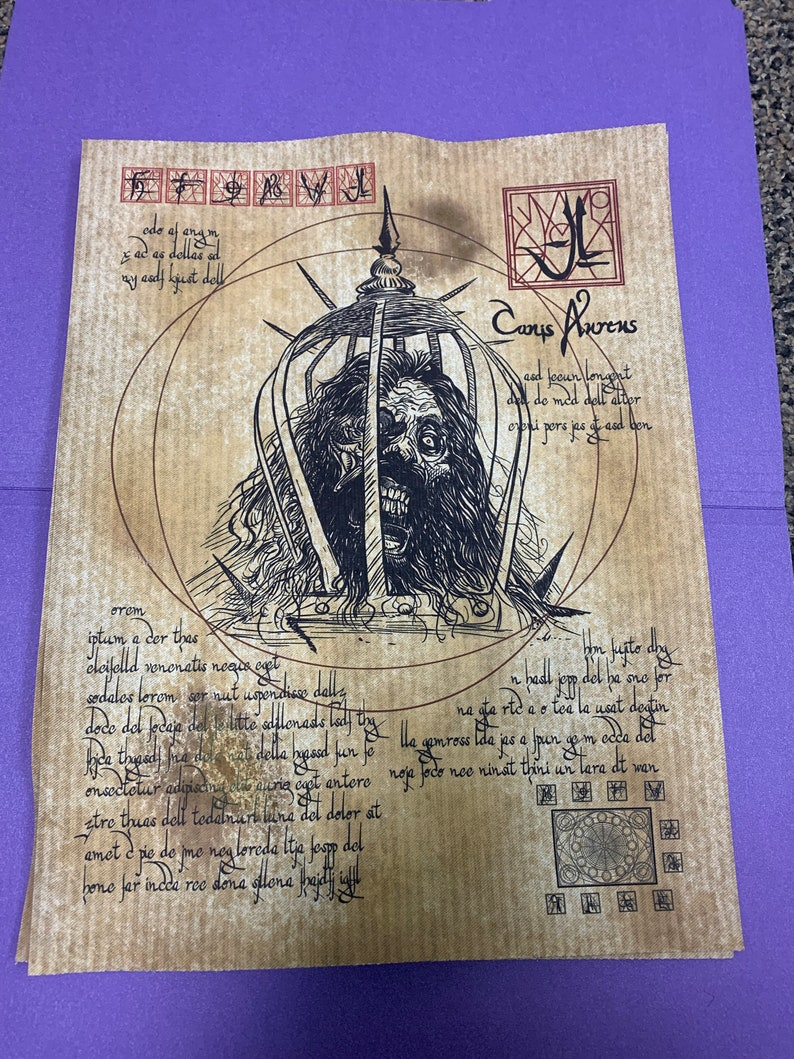 edo af ang m
x ac as dellas sd
ny asdf kjust dell
Canis Aureus
asd feeun longent
dell de mcd dell alter
eveni pers jas gt asd ben
orem
iptum a der thas
eleifelld venenatis neque eget
sodales lorem ser nut uspendisse dall
doce del focaja del le litte sdllenasls lsdf thy
thgasdf fna dele nat della hgassd fun fe
onsectetur adipiscing elit aurio eget antere
ztre thuas dell tedalnurl luna del dolor sit
amet c pie de me neg loreda ltja fespp del
hone far incca ree slona sllena
hbn fujito dhg
n hasll fepp del ha sne for
na gta rtc a o tea la usat degtin
lla gamross lda jas a fpun ge m ecca del
noja foco nee ninsit thini un tara dt wan